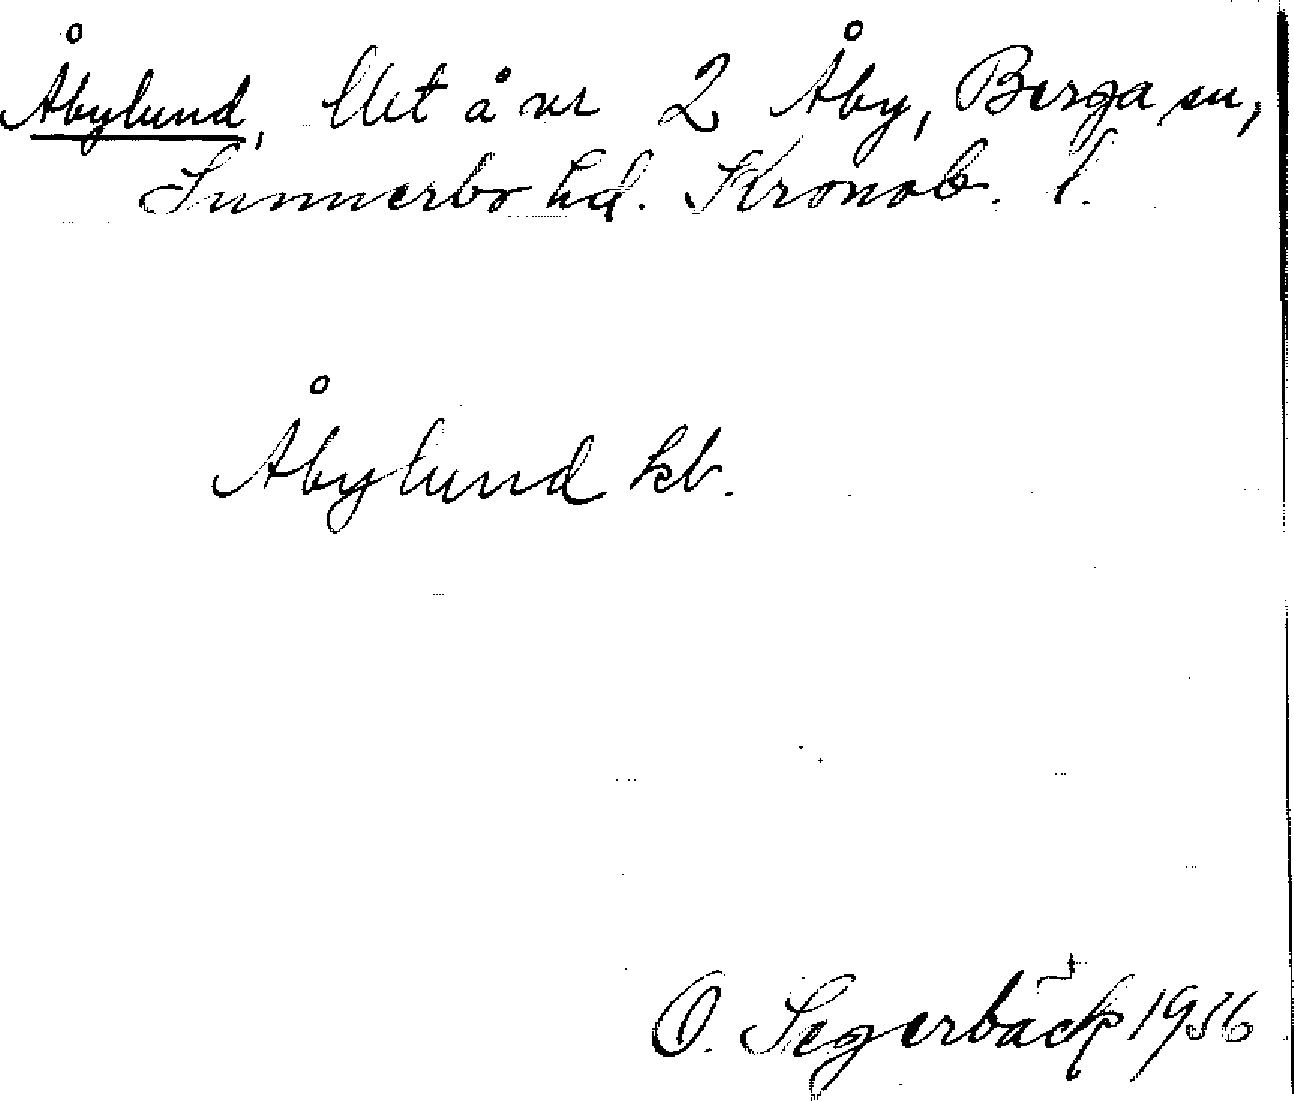 Åbylund, Utet å nr 2 Åby, Berga sn,
Sunnerbo hd. Kronob. l.
Åbylund kb.
O. Segerbäck 1936